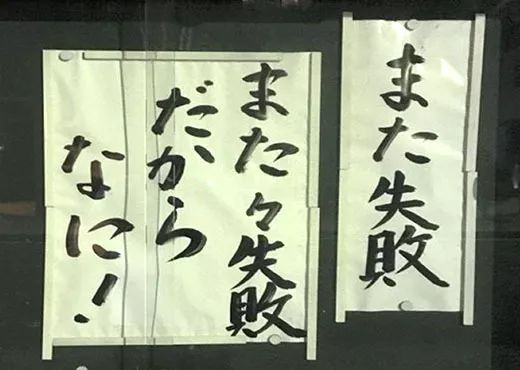 また失敗
また々失敗
だから
なに！